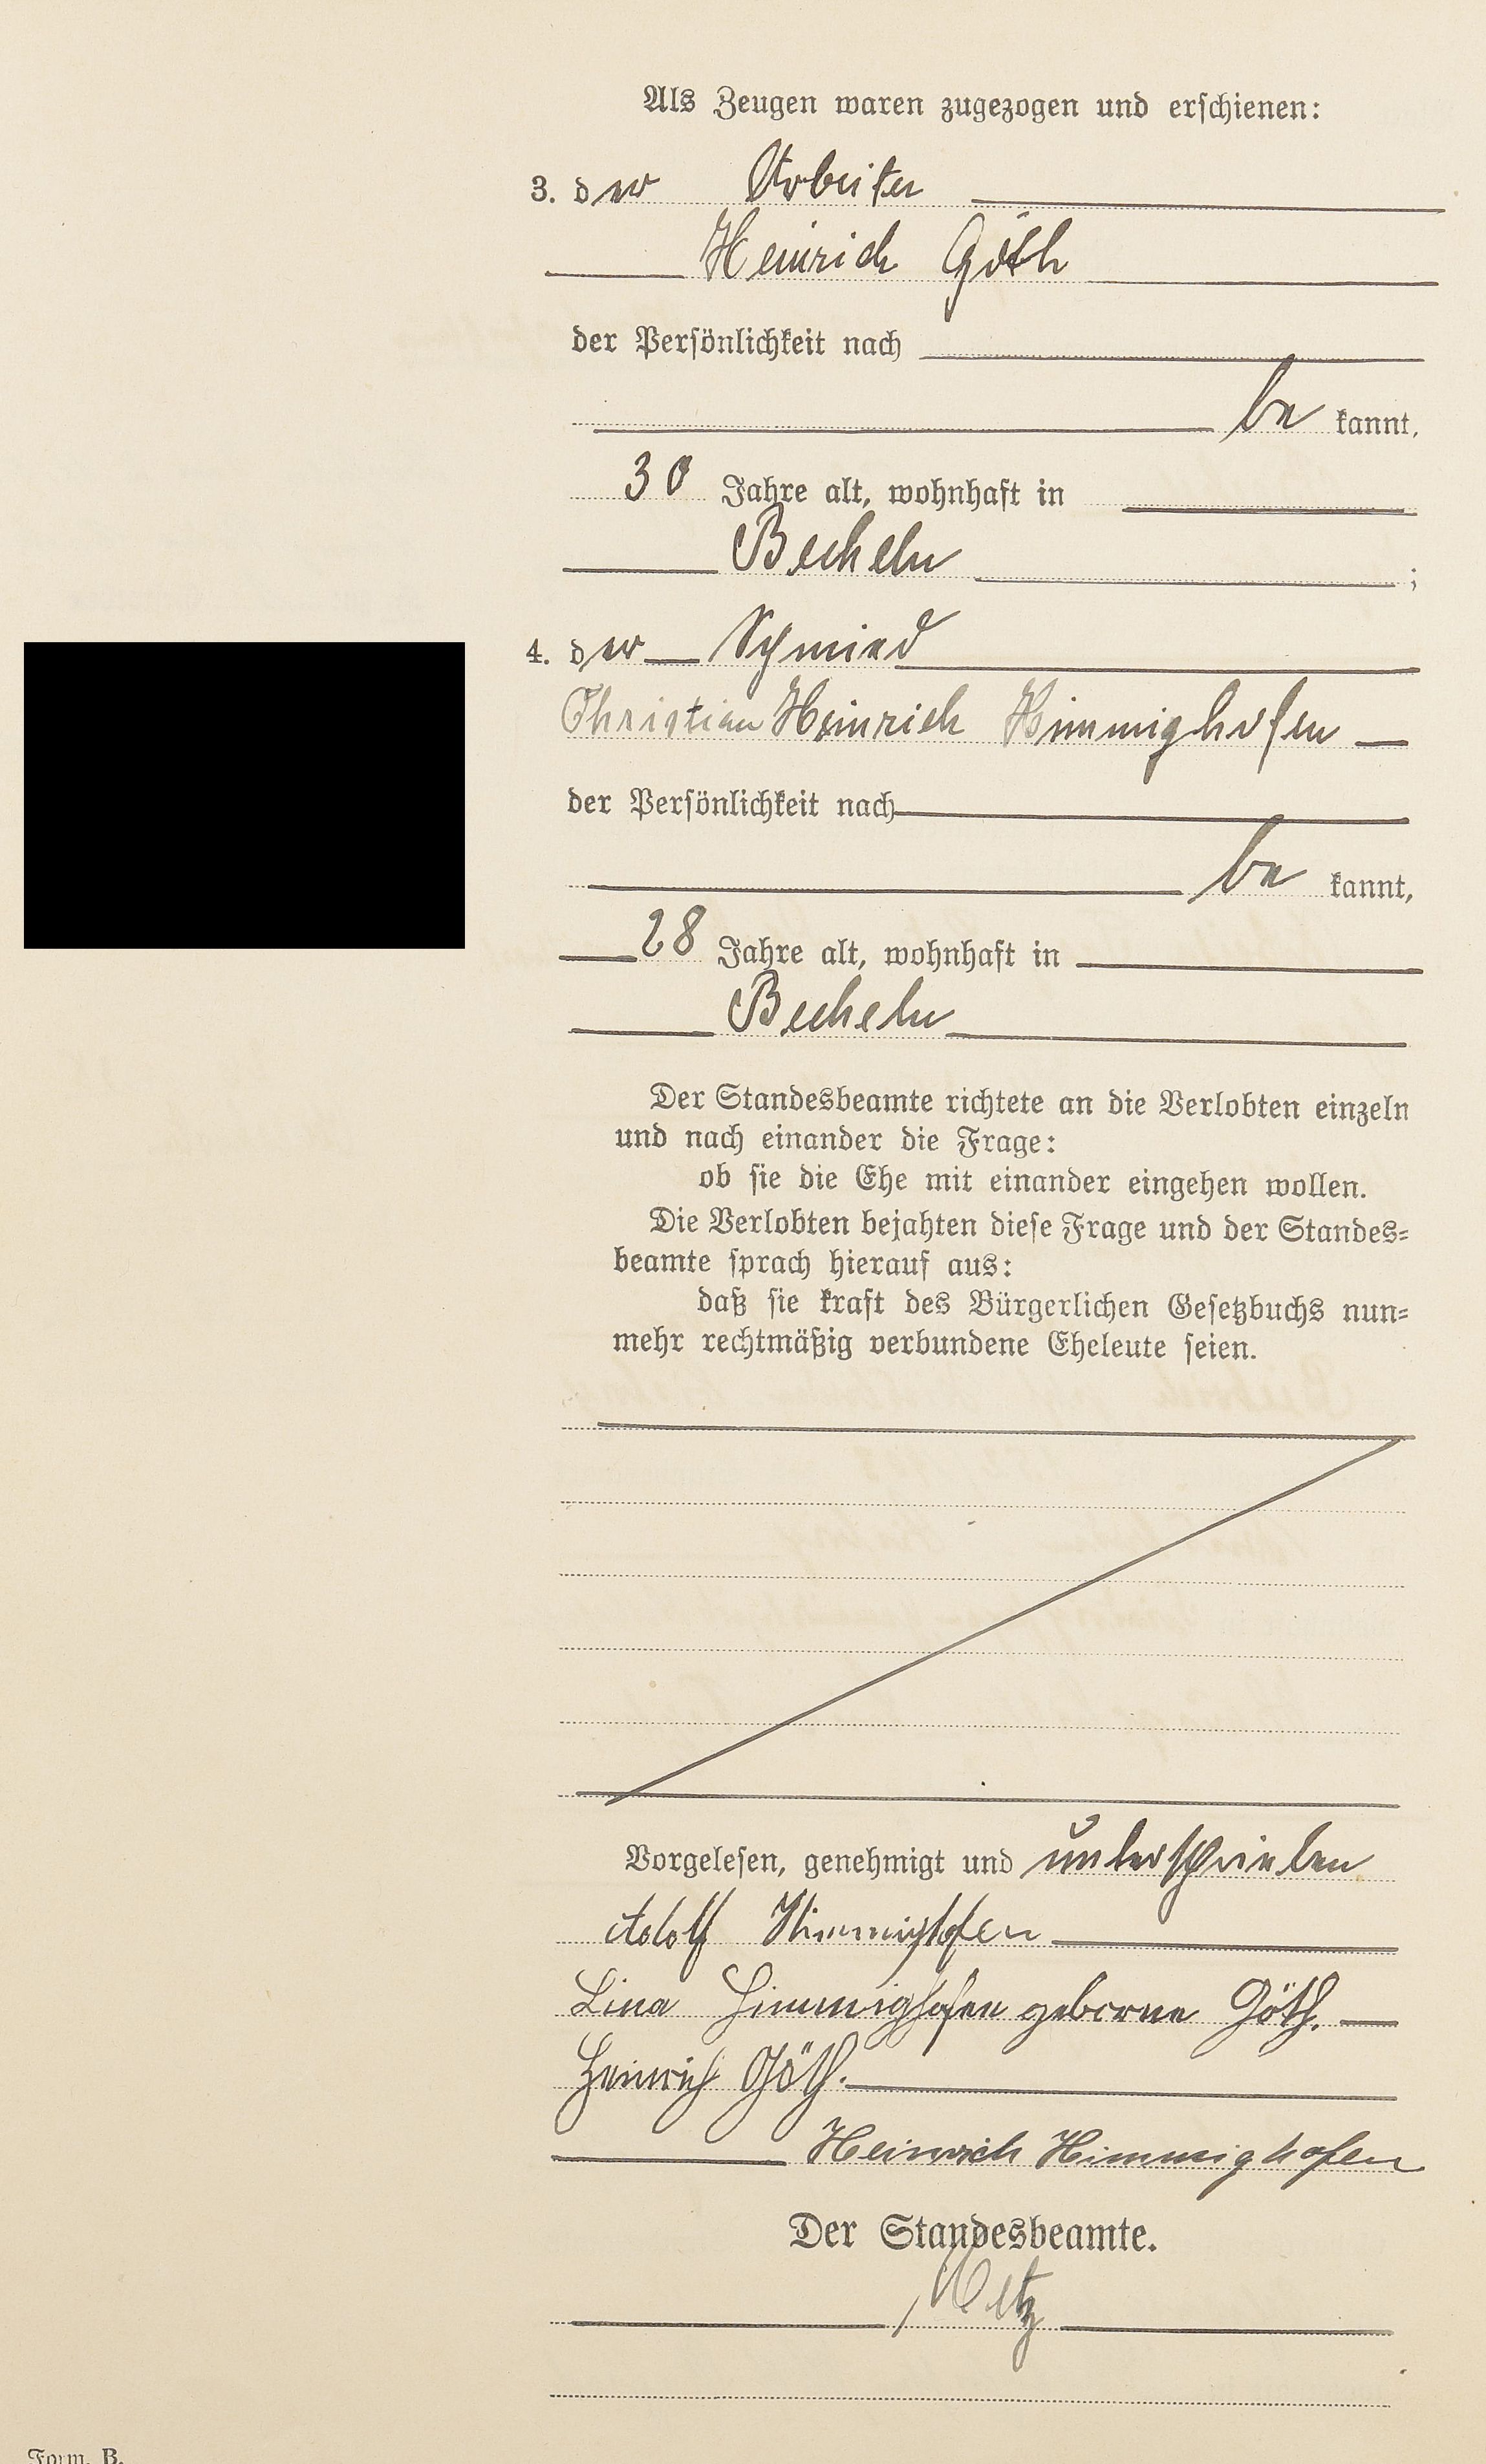 Als Zeugen waren zugezogen und erschienen:
3. der Arbeiter
Heinrich Göth
der Persönlichkeit nach
be kannt,
30 Jahre alt, wohnhaft in
Becheln ;
4. der Schmied
Christian Heinrich Himmighofen
der Persönlichkeit nach
be kannt,
28 Jahre alt, wohnhaft in
Becheln
Der Standesbeamte richtete an die Verlobten einzeln
und nach einander die Frage:
ob sie die Ehe mit einander eingehen wollen.
Die Verlobten bejahten diese Frage und der Standes=
beamte sprach hierauf aus:
daß sie kraft des Bürgerlichen Gesetzbuchs nun=
mehr rechtmäßig verbundene Eheleute seien.
Vorgelesen, genehmigt und unterschrieben
Adolf Himmighofen
Lina Himmighofen geborne Göth.
Heinrich Göth.
Heinrich Himmighofen
Der Standesbeamte.
Metz
Form. B.